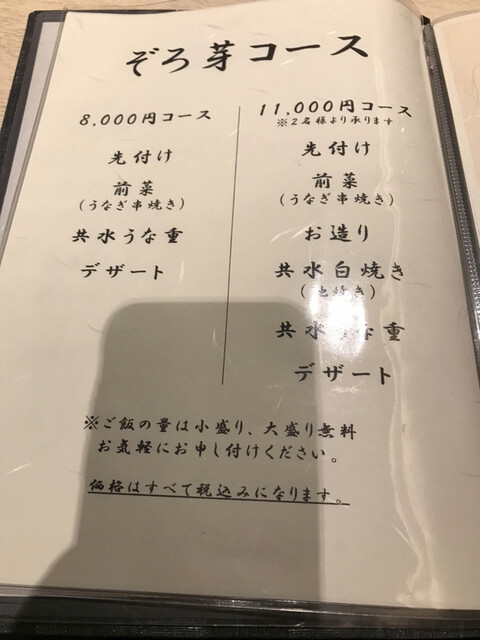 ぞろ芽コース
8,000円コース
先付け
前菜
(うなぎ串焼き)
共水うな重
デザート
11,000円コース
※2名様より承ります
先付け
前菜
(うなぎ串焼き)
お造り
共水白焼き
焼き)
共水うな重
デザート
※ご飯の量は小盛り、大盛り無料
お気軽にお申し付けください。
価格はすべて税込みになります。